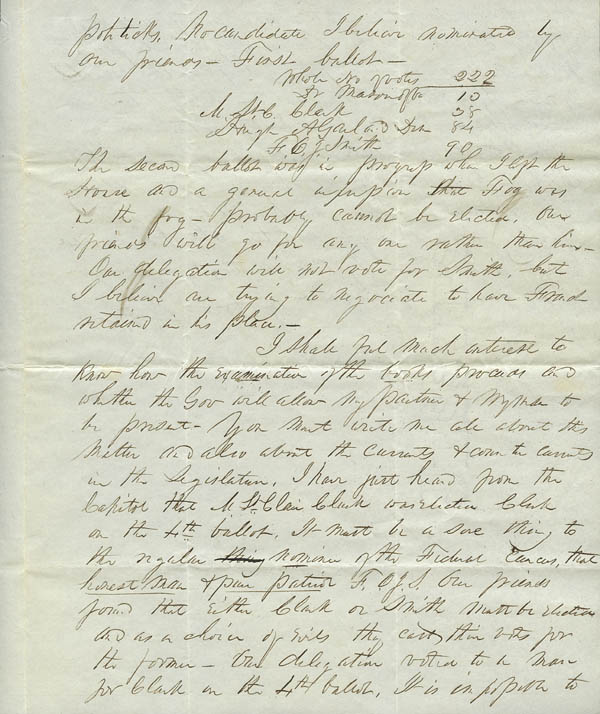 politicks. No candidate I believe nominated by
our friends — First ballot —
Whole No of votes 222
Fr Mason of o 10
M. St. C. Clark 38
Hugh A Garland Dem 84
F. O. J. Smith 90
The second ballot was in progress when I left the
House and a general impression that Fog was
in the fog — probably cannot be elected. Our
friends will go for any one rather than him —
Our delegation will not vote for Smith, but
I believe are trying to negociate to have French
retained in his place. —
I shall feel much interest to
know how the examination of the books proceeds and
whether the Gov will allow my partner & Wyman to
be present — You must write me all about this
matter and also about the currents & counter currents
in the Legislature. I have just heard from the
Capitol that M. St Clair Clark was elected Clerk
on the 4th ballot. It must be a sore thing to
the regular thing nominee of the Federal Caucus, that
honest man & pure patriot F. O. J. S. Our friends
found that either Clark or Smith must be elected
and as a choice of evils they cast their vote for
the former — Our delegation voted to a man
for Clark on the 4th ballot. It is impossible to